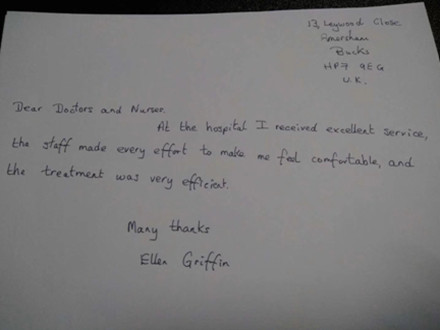 13, Leywood Close
Amersham
Bucks
HP7 9EG
U.K.
Dear Doctors and Nurses
At the hospital I received excellent service,
the staff made every effort to make me feel comfortable, and
the treatment was very efficient.
Many thanks
Ellen Griffin